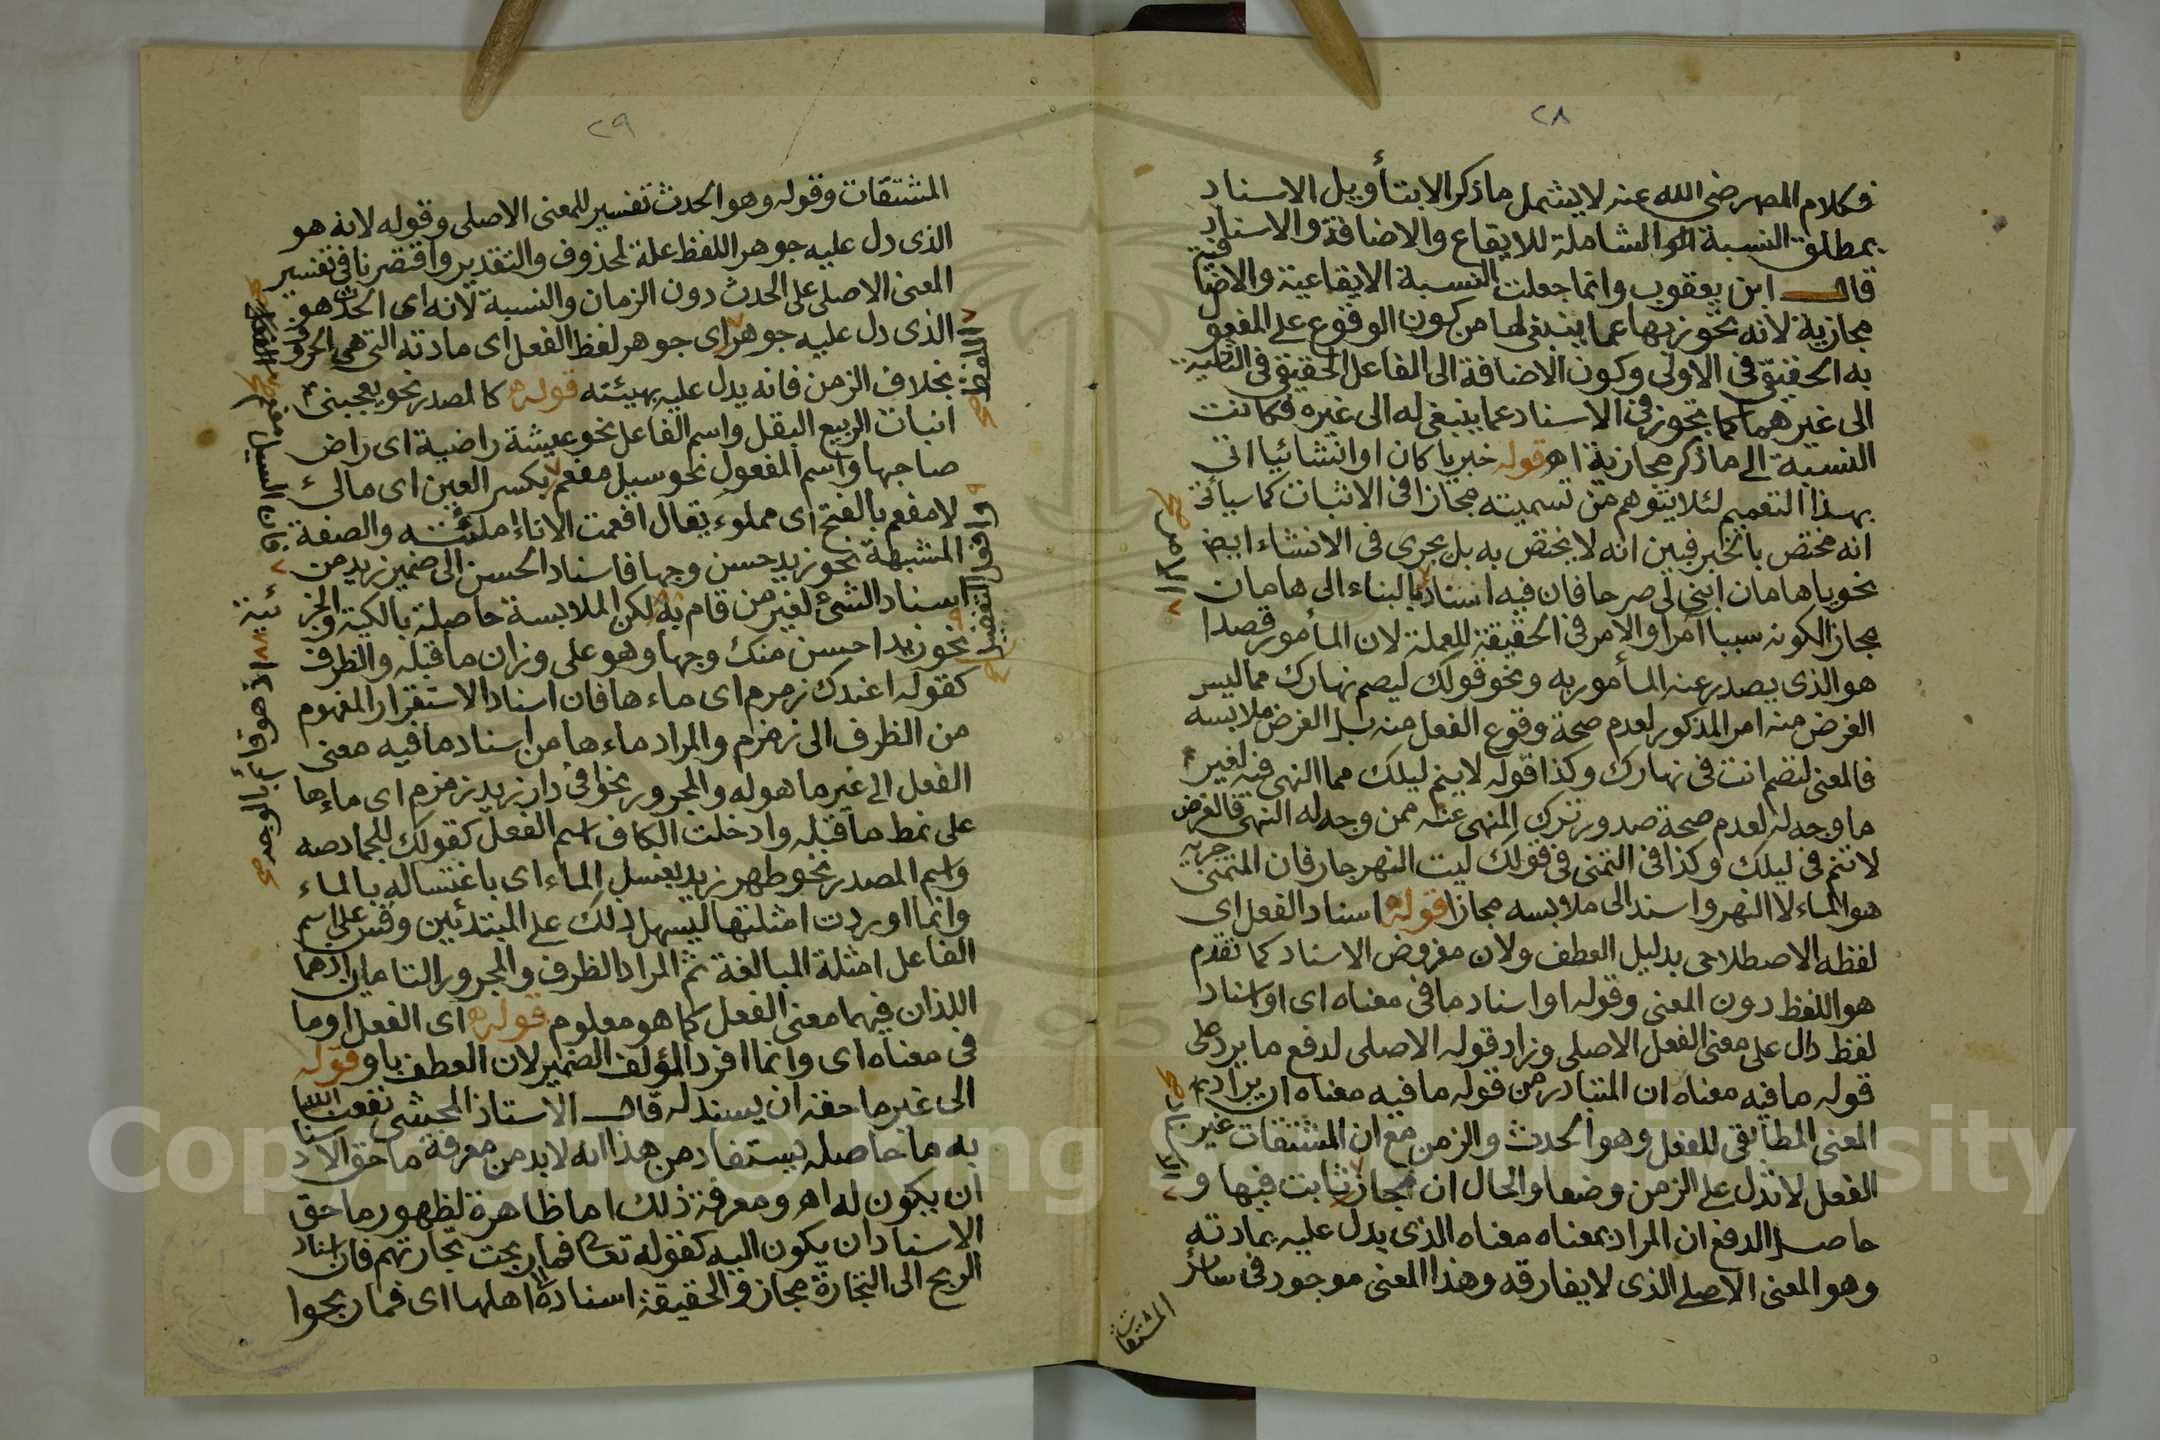 ٢٨
فكلام المصر رضي الله عنه لا يشمل ما ذكر الا بتأويل الاسناد
بمطلق النسبة الشاملة للايقاع والاضافة والاسناد
قال ابن يعقوب وانما جعلت النسبة الايقاعية والاضافية
مجازية لانه تجوز بها عما ينبغي لها من كون الوقوع على المفعول
به الحقيقي في الاولى وكون الاضافة الى الفاعل الحقيقي في الثانية
الى غيرهما كما تجوز في الاسناد عما ينبغي له الى غيره فكانت
النسبة الى ما ذكر مجازية اهـ قوله خبريا كان او انشائيا اتى
بهذا التعميم لئلا يتوهم من تسميته مجازا في الاثبات كما سيأتي
انه مختص بالخبر فبين انه لا يختص به بل يجرى في الانشاء ايض
نحو يا هامان ابن لي صرحا فان فيه اسناد البناء الى هامان
مجازا لكونه سببا آمرا والامر في الحقيقة للعملة لان المأمور قصدا
هو الذي يصدر عنه المأمور به ونحو قولك ليصم نهارك مما ليس
الغرض منه امر المذكور لعدم صحة وقوع الفعل منه بل الغرض ملابسه
فالمعنى لتصم انت في نهارك وكذا قوله لا ينم ليلك مما النهى فيه لغير
ما وجه له لعدم صحة صدور ترك المنهى عنه ممن وجه له النهى فالغرض
لا تنم في ليلك وكذا في التمنى في قولك ليت النهر جار فان المتمنى جريه
هو الماء لا النهر واسند الى ملابسه مجازا قوله اسناد الفعل اى
لفظه الاصطلاحى بدليل العطف ولان مفروض الاسناد كما تقدم
هو اللفظ دون المعنى وقوله او اسناد ما في معناه اى او اسناد
لفظ دال على معنى الفعل الاصلى وزاد قوله الاصلى لدفع ما يرد على
قوله ما فيه معناه ان المتبادر من قوله ما فيه معناه ان يراد به
المعنى المطابقى للفعل وهو الحدث والزمن مع ان المشتقات غير
الفعل لا تدل على الزمن وضعا والحال ان مجاز ثابت فيها و
حاصل الدفع ان المراد بمعناه معناه الذى يدل عليه بمادته
وهو المعنى الاصلى الذى لا يفارقه وهذا المعنى موجود في سائر
المشتقات
٢٩
المشتقات وقوله وهو الحدث تفسير للمعنى الاصلى وقوله لانه هو
الذى دل عليه جوهر اللفظ علة لمحذوف والتقدير واقتصرنا في تفسير
المعنى الاصلى على الحدث دون الزمان والنسبة لانه اى الحدث هو
الذى دل عليه جوهر اى جوهر لفظ الفعل اى مادته التى هى الحروف
بخلاف الزمن فانه يدل عليه بهيئته قوله كالمصدر نحو يعجبنى
انبات الربيع البقل واسم الفاعل نحو عيشة راضية اى راض
صاحبها واسم المفعول نحو سيل مفعم بكسر العين اى مالئ
لا مفعم بالفتح اى مملوء يقال افعمت الاناء املئته والصفة
المشبهة نحو زيد حسن وجها فاسناد الحسن الى ضمير زيد من
اسناد الشئ لغير من قام به لكن الملابسة حاصلة بالكلية والجز
نحو زيد احسن منك وجها وهو على وزان ما قبله والظرف
كقوله اعندك زمزم اى ماءها فان اسناد الاستقرار المفهوم
من الظرف الى زمزم والمراد ماءها من اسناد ما فيه معنى
الفعل الى غير ما هو له والمجرور نحو افي دار زيد زمزم اى ماءها
على نمط ما قبله وادخلت الكاف اسم الفعل كقولك للجماد صه
واسم المصدر نحو طهر زيد بغسل الماء اى باغتساله بالماء
وانما اوردت امثلتها ليسهل ذلك على المبتدئين وقس على اسم
الفاعل امثلة المبالغة ثم المراد الظرف والمجرور التامان اذ هما
اللذان فيهما معنى الفعل كما هو معلوم قوله اى الفعل او ما
في معناه اى وانما افرد المؤلف الضمير لان العطف باو قوله
الى غير ما حقه ان يسند له قال الاستاذ المحشى نفعنا الله
به ما حاصله يستفاد من هذا انه لا بد من معرفة ما حق الاسناد
ان يكون له اهـ ومعرفة ذلك اما ظاهرة لظهور ما حق
الاسناد ان يكون اليه كقوله تعالى فما ربحت تجارتهم فان اسناد
الربح الى التجارة مجاز والحقيقة اسناده اهلها اى فما ربحوا